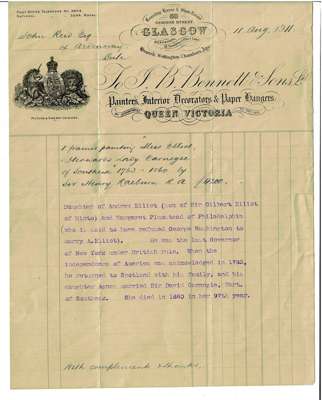 POST OFFICE TELEPHONE No. 3674.
NATIONAL
Gordon Street
GLASGOW
11 Aug. 1911
John Reid Esq
To J. B. Bennett & Sons Ld
Painters, Interior Decorators & Paper Hangers.
QUEEN VICTORIA
1 framed painting Miss Elliot,
afterwards Lady Carnegie
of Southesk 1763 - 1860 by
Sir Henry Raeburn R.A
Daughter of Andrew Elliot (son of Sir Gilbert Elliot
of Minto) and Margaret Plumstead of Philadelphia
who is said to have refused George Washington to
marry A.Elliot). He was the last Governor
of New York under British rule. When the
independence of America was acknowledged in 1783,
he returned to Scotland with his family, and his
daughter Agnes married Sir David Carnegie, Bart.
of Southesk. She died in 1860 in her 97th year.
With compliments & thanks.